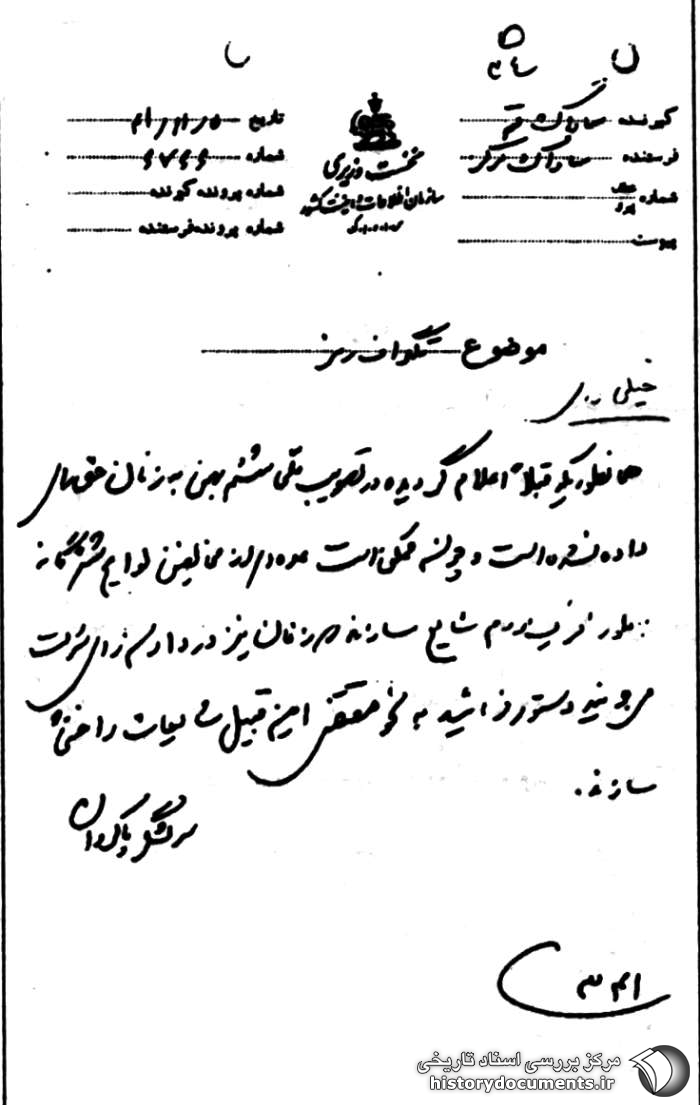 گیرنده ساواک قم
فرستنده ساواک مرکز
شماره
پیوست
نخست وزیری
سازمان اطلاعات و امنیت کشور
تاریخ
شماره
شماره پرونده گیرنده
شماره پرونده فرستنده
موضوع تلگراف رمز
خیلی
همانطوریکه قبلاً اعلام گردیده در تصویب ملی ششم بهمن به زنان حق رأی
داده نشده است و چون ممکن است عده‌ای از مخالفین لوایح ششگانه
بطور فریب مردم شایع سازند که زنان نیز در دادن رأی شرکت
می‌جویند دستور فرمائید به نحو مقتضی این قبیل شایعات را خنثی
سازند.
سرلشگر پاکروان
مرکز بررسی اسناد تاریخی
historydocuments.ir